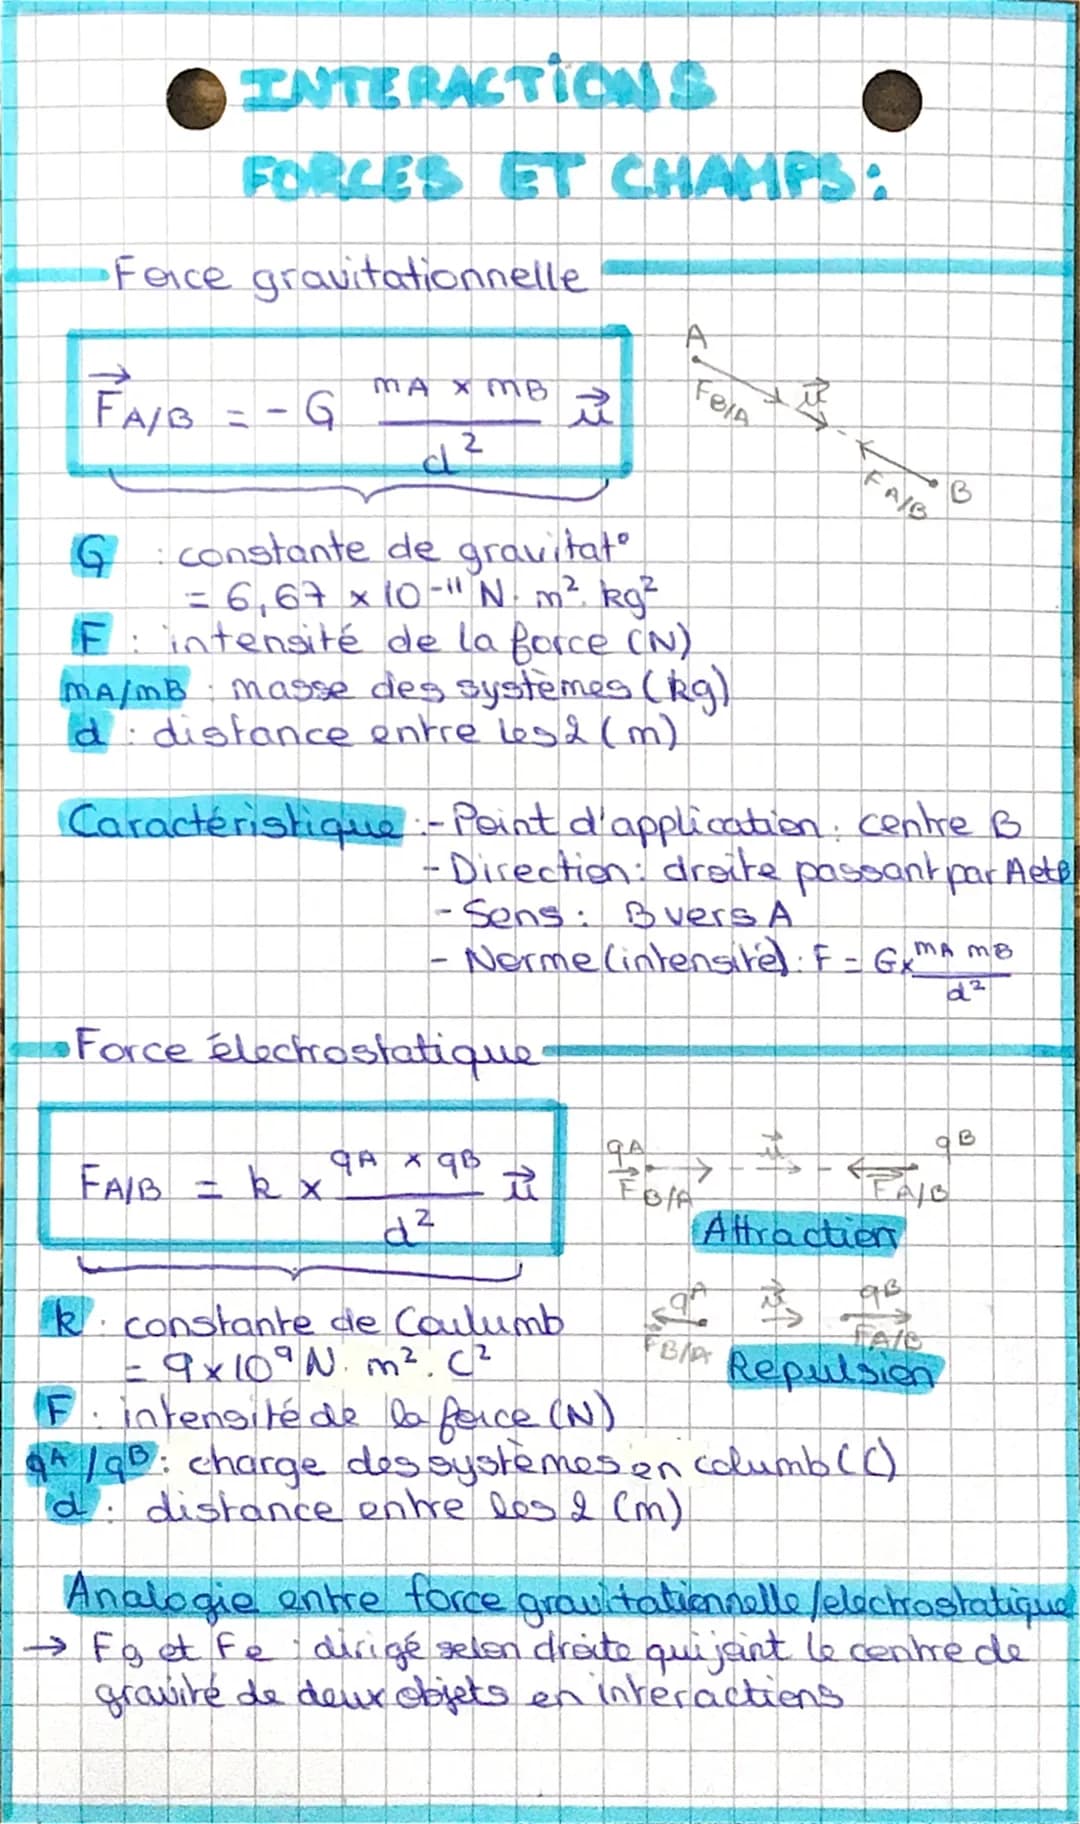 INTERACTIONS
FORCES ET CHAMPS :
Force gravitationnelle
F⃗A/B = - G mA x mB / d² u⃗
A
FB/A
u⃗
FA/B
B
G : constante de gravitat°
= 6,67 x 10⁻¹¹ N. m². kg²
F : intensité de la force (N)
mA/mB : masse des systèmes (kg)
d : distance entre les 2 (m)
Caractéristique :- Point d'application : centre B
- Direction : droite passant par A et B
- Sens : B vers A
- Norme (intensité) : F = G x mA mB / d²
Force électrostatique
FA/B = k x qA x qB / d² u⃗
qA u⃗ qB
F⃗B/A F⃗A/B
Attraction
qA u⃗ qB
FB/A FA/B
Repulsion
k : constante de Coulumb
= 9 x 10⁹ N. m². C²
F : intensité de la force (N)
qA / qB : charge des systèmes en columb (C)
d : distance entre les 2 (m)
Analogie entre force gravitationnelle/electrostatique
→ Fg et Fe : dirigé selon droite qui joint le centre de
gravité de deux objets en interactions